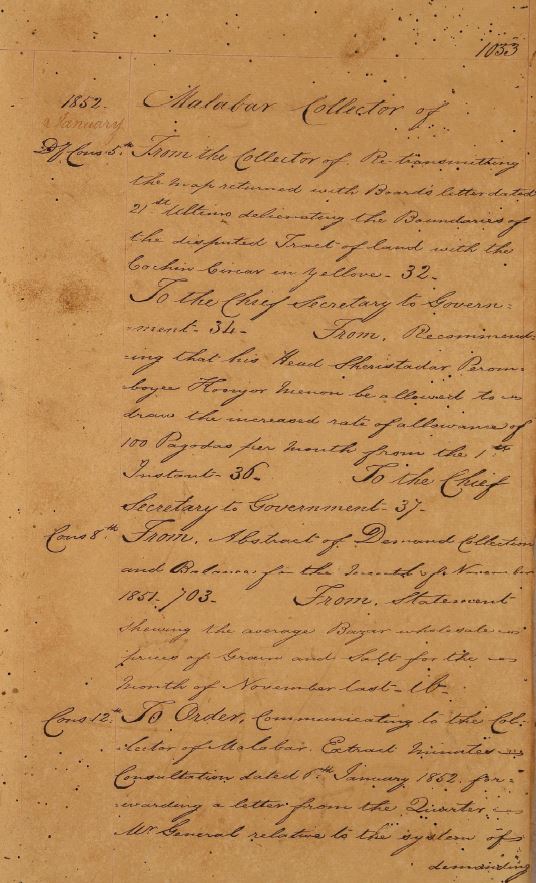 1033
1852. Malabar Collector of
January
Cons 5.th From the Collector of. Re-transmitting
the map returned with Board's letter dated
21st Ultimo delineating the Boundaries of
the disputed Tract of land with the
Cochin Circar in yellow - 32 -
To the Chief Secretary to Govern=
-ment - 34 - From, Recommend=
-ing that his Head Sheristadar Perom=
boyee Koonyor Menon be allowed to
draw the increased rate of allowance of
100 Pagodas per month from the 1st
Instant - 36 - To the Chief
Secretary to Government - 37 -
Cons 8th From, Abstract of Demand Collection
and Balance for the Month of November
1851. 703 - From, Statement
shewing the average Bazar wholesale
prices of Grain and Salt for the
month of November last - 16 -
Cons 12th To Order, Communicating to the Col=
-lector of Malabar. Extract Minutes
Consultation dated January 1852. for=
-warding a letter from the Quarter
Mr General relative to the system of
demanding